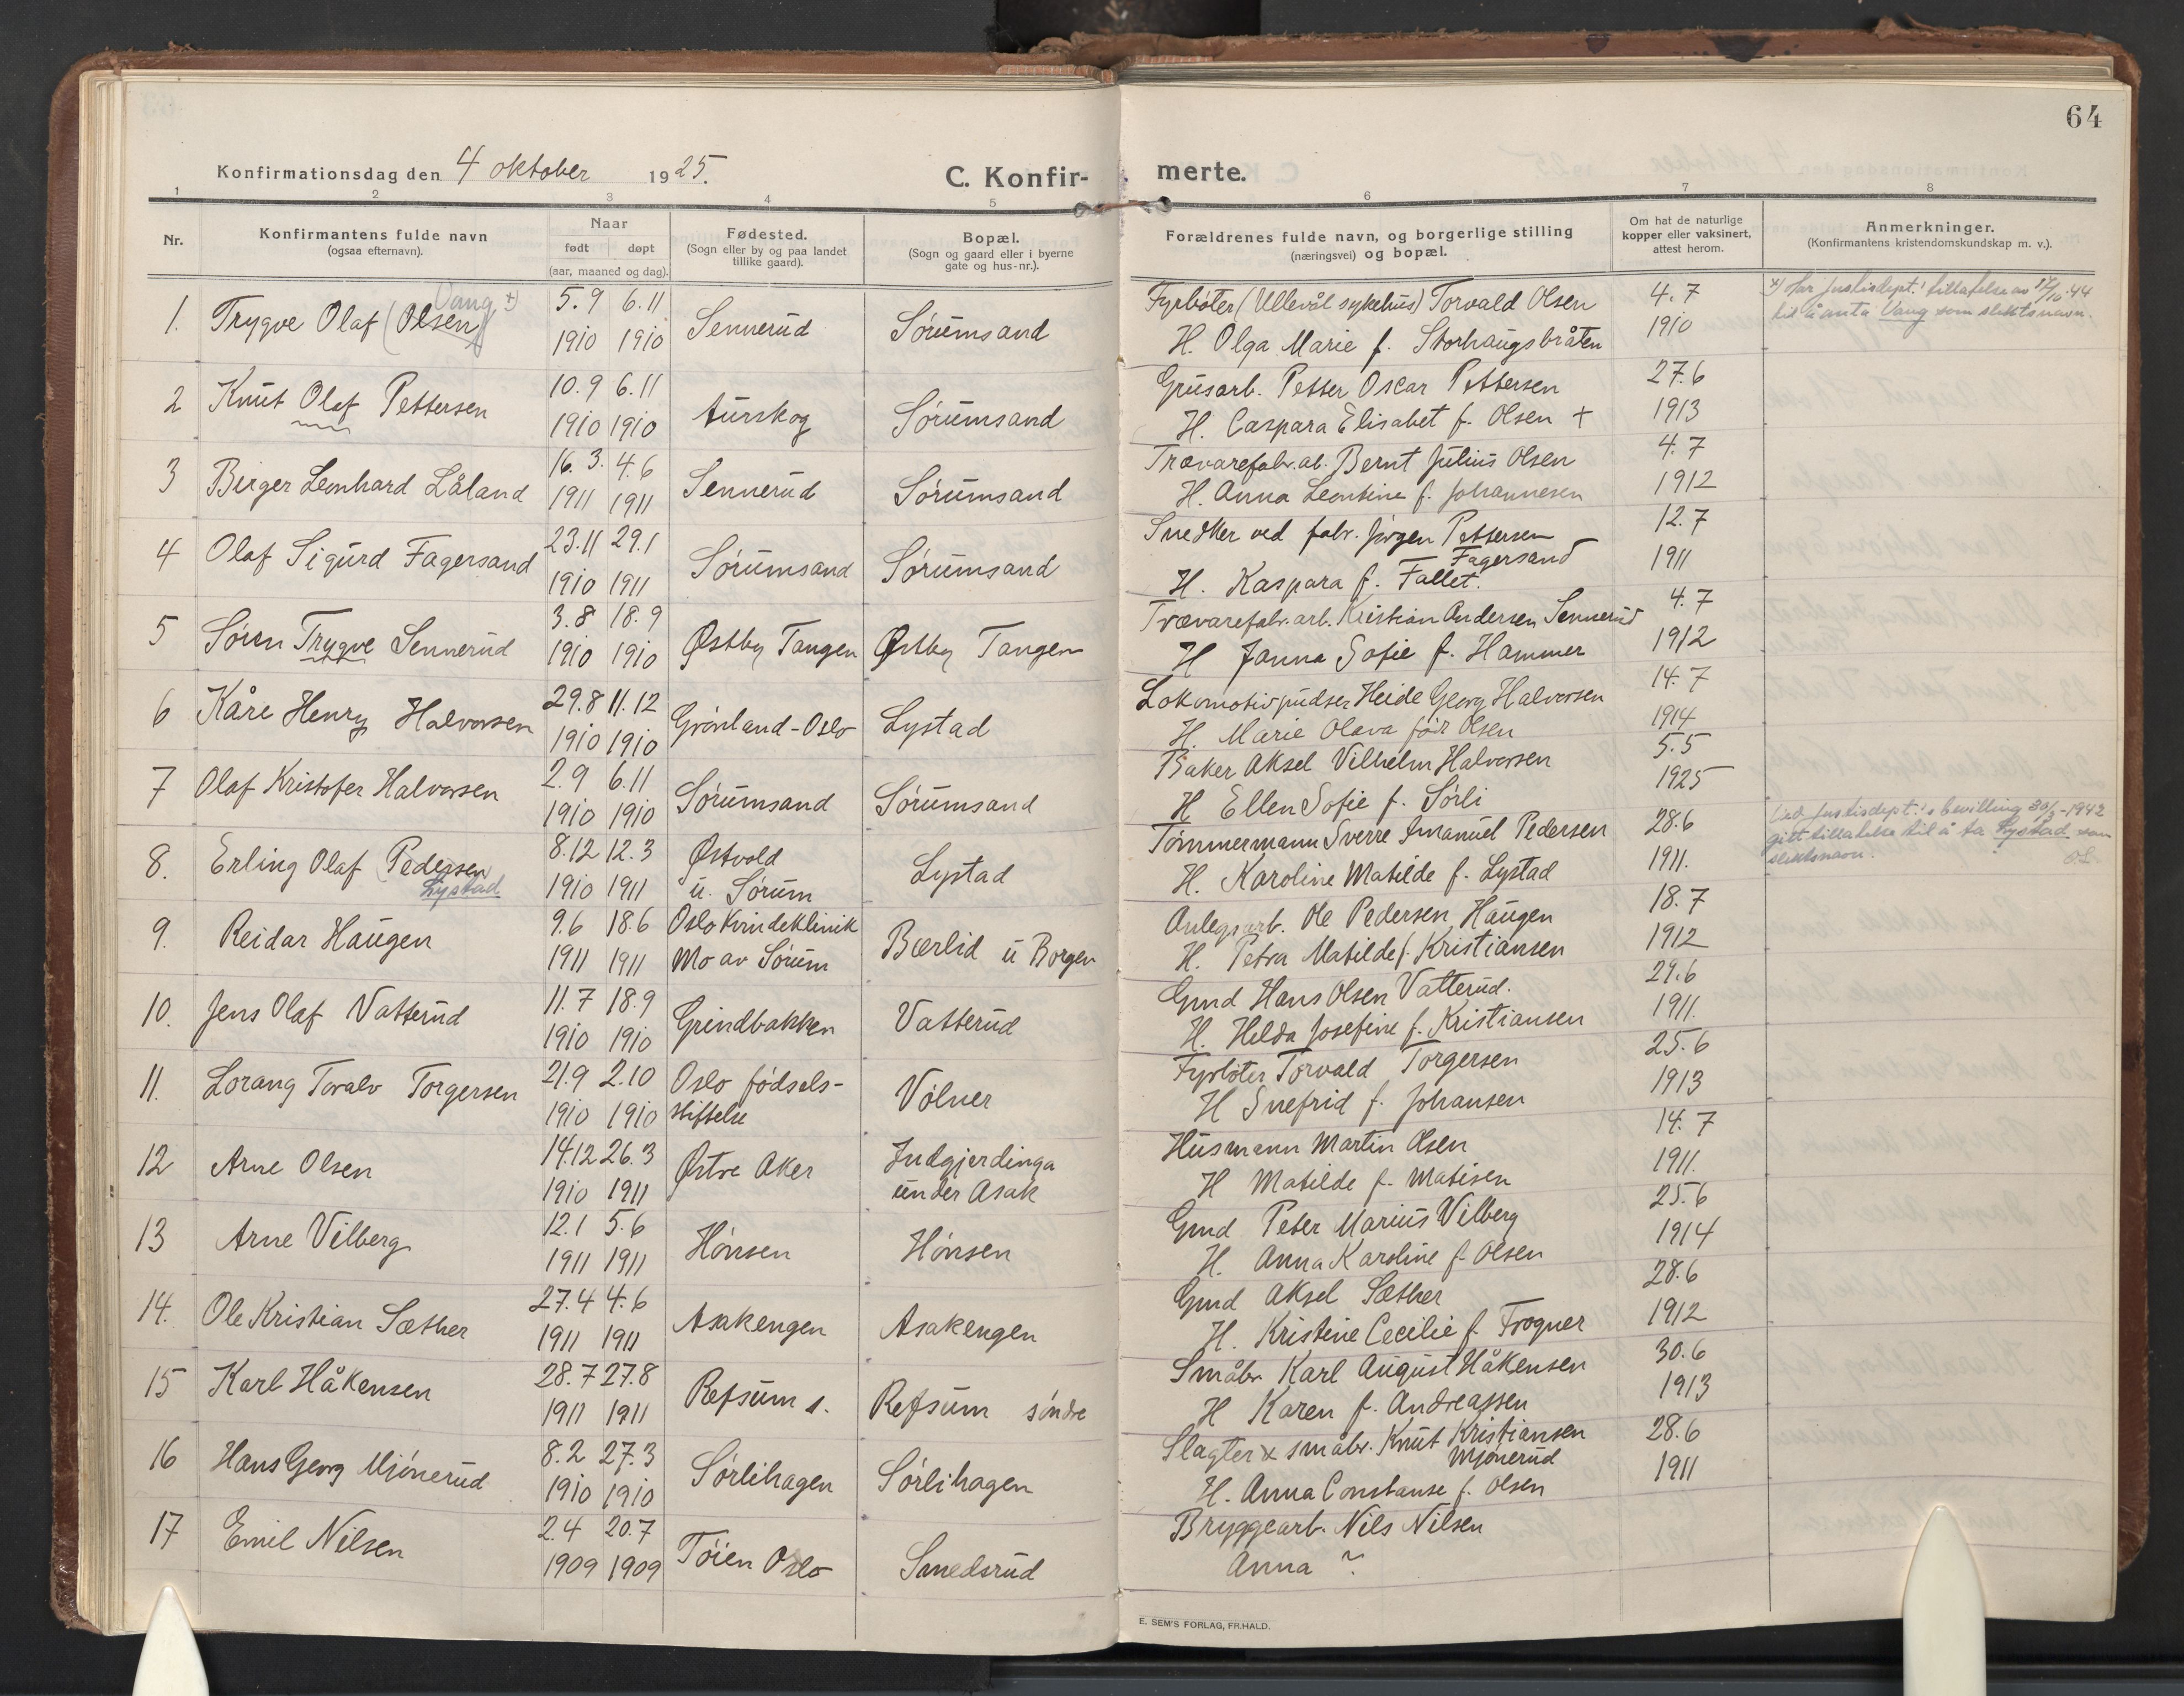 64
Konfirmationsdag den 4 oktober 1925.
C. Konfir- merte.
1 2 3 4 5 6 7 8
Nr.
Konfirmantens fulde navn
(ogsaa efternavn).
Naar
født døpt
(aar, maaned og dag).
Fødested.
(Sogn eller by og paa landet
tillike gaard).
Bopæl.
(Sogn og gaard eller i byerne
gate og hus-nr.).
Forældrenes fulde navn, og borgerlige stilling
(næringsvei) og bopæl.
Om hat de naturlige
kopper eller vaksinert,
attest herom.
Anmerkninger.
(Konfirmantens kristendomskundskap m. v.).
Vang x)
1. Trygve Olaf (Olsen) 5.9 6.11 Sennerud Sørumsand Fyrbøter (Ullevål sykehus) Torvald Olsen 4.7 x) Har Justisdept.s tillatelse av 17/10.44
1910 1910 H. Olga Marie f. Storhaugsbråten 1910 til å anta Vang som slektsnavn.
2 Knut Olaf Pettersen 10.9 6.11 Aurskog Sørumsand Grusarb. Petter Oscar Pettersen 27.6
1910 1910 H. Caspara Elisabet f. Olsen + 1913
3 Birger Leonhard Låland 16.3. 4.6 Sennerud Sørumsand Trævarefabr.ab. Bernt Julius Olsen 4.7
1911 1911 H. Anna Leontine f. Johannesen 1912
4 Olaf Sigurd Fagersand 23.11 29.1 Sørumsand Sørumsand Snedker ved fabr. Jørgen Pettersen 12.7
Fagersand
1910 1911 H. Kaspara f. Fallet. 1911
5 Søren Trygve Sennerud 3.8 18.9 Østby Tangen Østby Tangen Trævarefabr.arb. Kristian Andersen Sennerud 4.7
1910 1910 H Janna Sofie f. Hammer 1912
6 Kåre Henry Halvorsen 29.8 11.12 Grønland-Oslo Lystad Lokomotivpudser Heide Georg Halvorsen 14.7
1910 1910 H. Marie Olava før Olsen 1914
7 Olaf Kristofer Halvorsen 2.9 6.11 Sørumsand Sørumsand Baker Aksel Vilhelm Halvorsen 5.5
1910 1910 H Ellen Sofie f. Sørli 1925
8. Erling Olaf Pedersen 8.12 12.3 Østvold Lystad Tømmermann Sverre Imanuel Pedersen 28.6 Ved Justisdept.s bevilling 30/3-1942
Lystad 1910 1911 u. Sørum H. Karoline Matilde f. Lystad 1911. gitt tillatelse til å ta Lystad som
slektsnavn. O.L.
9. Reidar Haugen 9.6 18.6 Oslo Kvindeklinik Bærlid u Borgen Anlegsarb. Ole Pedersen Haugen 18.7
1911 1911 Mo av Sørum H. Petra Matilde f. Kristiansen 1912
10. Jens Olaf Vatterud 11.7 18.9 Grindbakken Vatterud Gmd Hans Olsen Vatterud. 29.6
1910 1910 H. Helda Josefine f. Kristiansen 1911.
11. Lorang Toralv Torgersen 21.9 2.10 Oslo fødsels- Vølner Fyrbøter Torvald Torgersen 25.6
1910 1910 stiftelse H Snefrid f. Johansen 1913
12 Arne Olsen 14.12 26.3 Østre Aker Indgjerdinga Husmann Martin Olsen 14.7
1910 1911 under Asak H Matilde f. Matisen 1911.
13 Arne Vilberg 12.1 5.6 Hønsen Hønsen Gmd Peter Marius Vilberg 25.6
1911 1911 H. Anna Karoline f. Olsen 1914
14. Ole Kristian Sæther 27.4 4.6 Asakengen Asakengen Gmd Aksel Sæther 28.6
1911 1911 H. Kristine Cecilie f. Trogner 1912
15 Karl Håkensen 28.7 27.8 Refsum s. Refsum søndre Småbr. Karl August Håkensen 30.6
1911 1911 H Karen f. Andreassen 1913
16 Hans Georg Mjønerud 8.2 27.3 Sørlihagen Sørlihagen Slagter & småbr. Knut Kristiansen 28.6
Mjønerud
1910 1910 H. Anna Constanse f. Olsen 1911
17 Emil Nilsen 2.4 20.7 Tøien Oslo Smedsrud Bryggearb. Nils Nilsen
1909 1909 Anna ~
E. SEM'S FORLAG, FR.HALD.